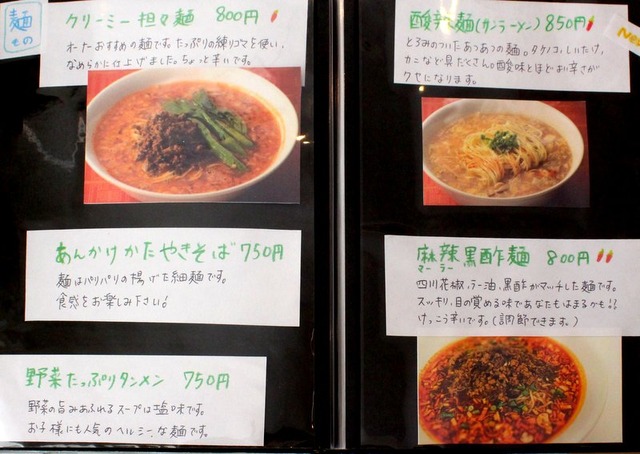 麺もの
クリーミー担々麺 800円
オーナーおすすめの麺です。たっぷりの練りゴマを使い、
なめらかに仕上げました。ちょっと辛いです。
あんかけかたやきそば 750円
麺はパリパリの揚げた細麺です。
食感をお楽しみ下さい!
野菜たっぷりタンメン 750円
野菜の旨みあふれるスープは塩味です。
お子様にも人気のヘルシーな麺です。
酸辣麺(サンラーメン) 850円
とろみのついたあつあつの麺。タケノコ、しいたけ、
カニなど具だくさん。酸味とほどよい辛さが
クセになります。
New
麻辣黒酢麺 800円
マーラー
四川花椒、ラー油、黒酢がマッチした麺です。
スッキリ、目の覚める味であなたもはまるかも!!
けっこう辛いです。(調節できます。)